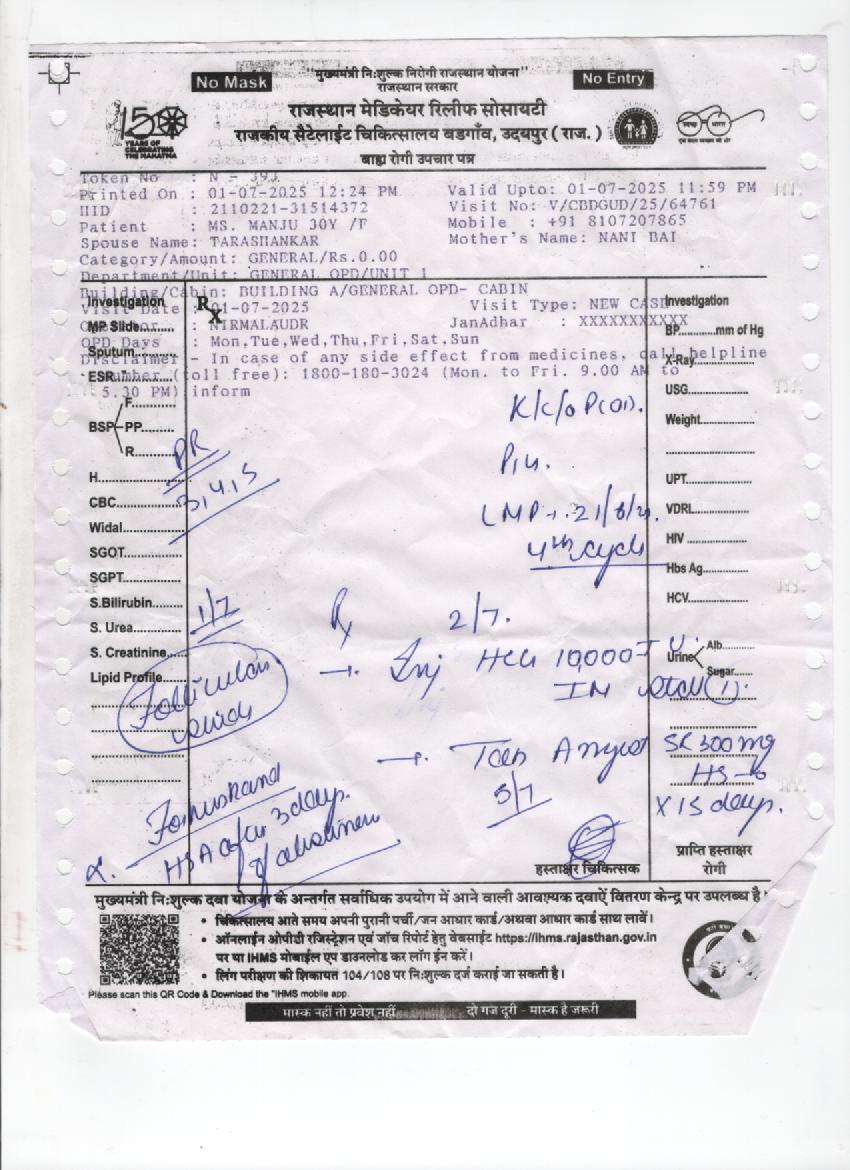 No Mask
"मुख्यमंत्री नि:शुल्क निरोगी राजस्थान योजना"
राजस्थान सरकार
No Entry
राजस्थान मेडिकेयर रिलीफ सोसायटी
राजकीय सैटेलाईट चिकित्सालय बडगाँव, उदयपुर ( राज. )
बाह्य रोगी उपचार पत्र
150
YEARS OF
CELEBRATING
THE MAHATMA
Token No : N - 393
Printed On : 01-07-2025 12:24 PM Valid Upto: 01-07-2025 11:59 PM
HID : 2110221-31514372 Visit No: V/CBDGUD/25/64761
Patient : MS. MANJU 30Y /F Mobile : +91 8107207865
Spouse Name: TARASHANKAR Mother's Name: NANI BAI
Category/Amount: GENERAL/Rs.0.00
Department/Unit: GENERAL OPD/UNIT 1
Building/Cabin: BUILDING A/GENERAL OPD- CABIN
Visit Date : 01-07-2025 Visit Type: NEW CASE
NIRMALAUDR JanAdhar : XXXXXXXXXXX
OPD Days : Mon,Tue,Wed,Thu,Fri,Sat,Sun
Disclaimer - In case of any side effect from medicines, call helpline
number (toll free): 1800-180-3024 (Mon. to Fri. 9.00 AM to
5.30 PM) inform
Investigation
Rx
MP Slide
Sputum
ESR
BSP F
PP
R
H
CBC
Widal
SGOT
SGPT
S.Bilirubin
S. Urea
S. Creatinine
Lipid Profile
Investigation
BP mm of Hg
X-Ray
USG
Weight
UPT
VDRL
HIV
Hbs Ag
HCV
Urine Alb.
Sugar
K/c/o P(01).
LMP
4th cycle
3,4,5
1/7
Rx 2/7.
→ Inj HCG 10,000 I U.
IM stat (1).
Follicular
→ Tab SR 300 mg
HS
X 15 days.
5/7
HSA after 3 days
of
हस्ताक्षर चिकित्सक
प्राप्ति हस्ताक्षर
रोगी
मुख्यमंत्री नि:शुल्क दवा योजना के अन्तर्गत सर्वाधिक उपयोग में आने वाली आवश्यक दवाऐं वितरण केन्द्र पर उपलब्ध है।
• चिकित्सालय आते समय अपनी पुरानी पर्ची/जन आधार कार्ड/अथवा आधार कार्ड साथ लावें।
• ऑनलाईन ओपीडी रजिस्ट्रेशन एवं जाँच रिपोर्ट हेतु वेबसाईट https://ihms.rajasthan.gov.in
पर या IHMS मोबाईल एप डाउनलोड कर लॉग ईन करें।
• लिंग परीक्षण की शिकायत 104/108 पर नि:शुल्क दर्ज कराई जा सकती है।
Please scan this QR Code & Download the "IHMS mobile app.
मास्क नहीं तो प्रवेश नहीं दो गज दूरी - मास्क है जरूरी